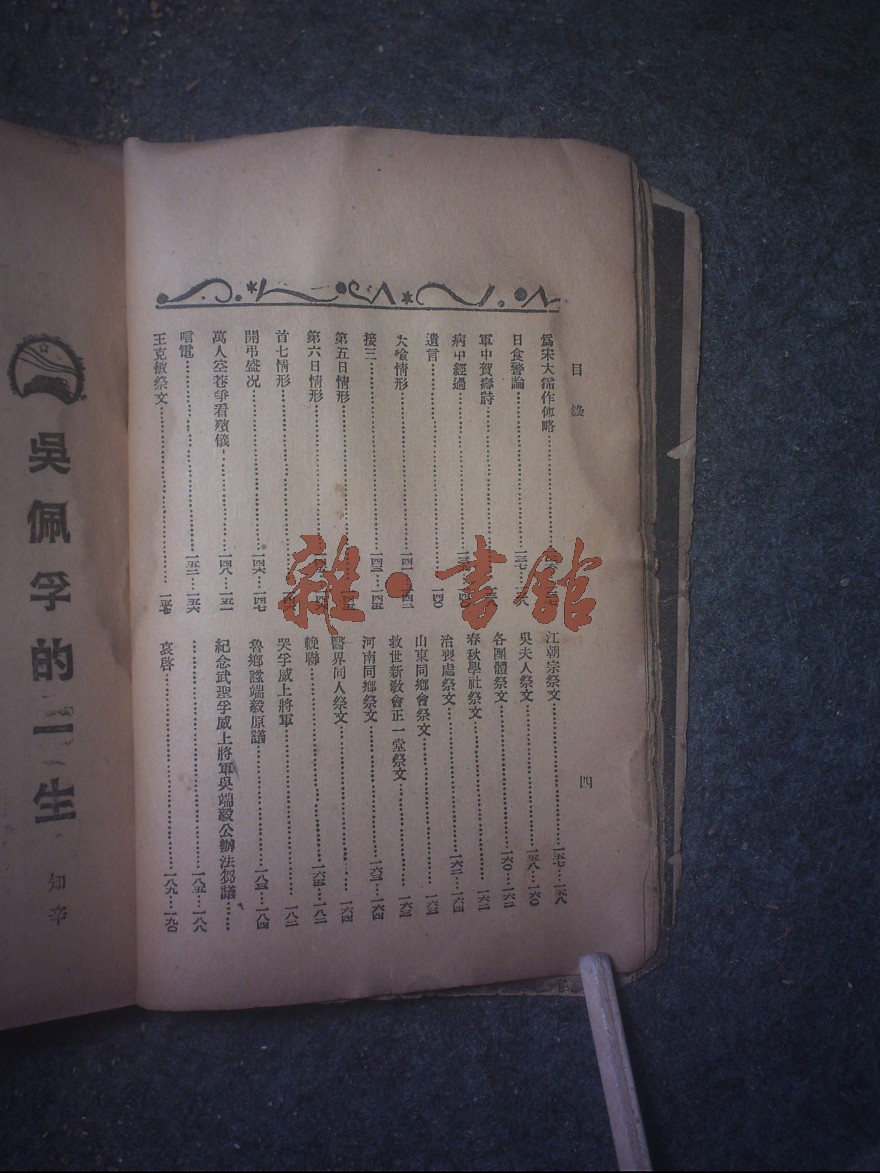 目錄
四
為宋大儒作傳略
日食警論
軍中賀壽詩
病中經過
遺言
大殮情形……一四一…一四二
接三……一四三…一四五
第五日情形
第六日情形
首七情形
開弔盛况……一四六…一四七
萬人空巷爭看殯儀……一四八…一五一
唁電……一五二…一五六
王克敏祭文……一五七
江朝宗祭文……一五七…一五八
吳夫人祭文……一五八…一六〇
各團體祭文……一六〇…一六二
春秋學社祭文……一六二
治喪處祭文
山東同鄉會祭文
救世新敎會正一堂祭文
河南同鄉祭文……一六三…一六四
醫界同人祭文……一六四
輓聯……一六五…一八二
哭孚威上將軍……一八二
魯鄉諡端毅原議……一八三…一八四
紀念武聖孚威上將軍吳端毅公辦法芻議……
……一八五…一八八
哀啓……一八九…一九〇
吳佩孚的一生
知辛
雜·書館